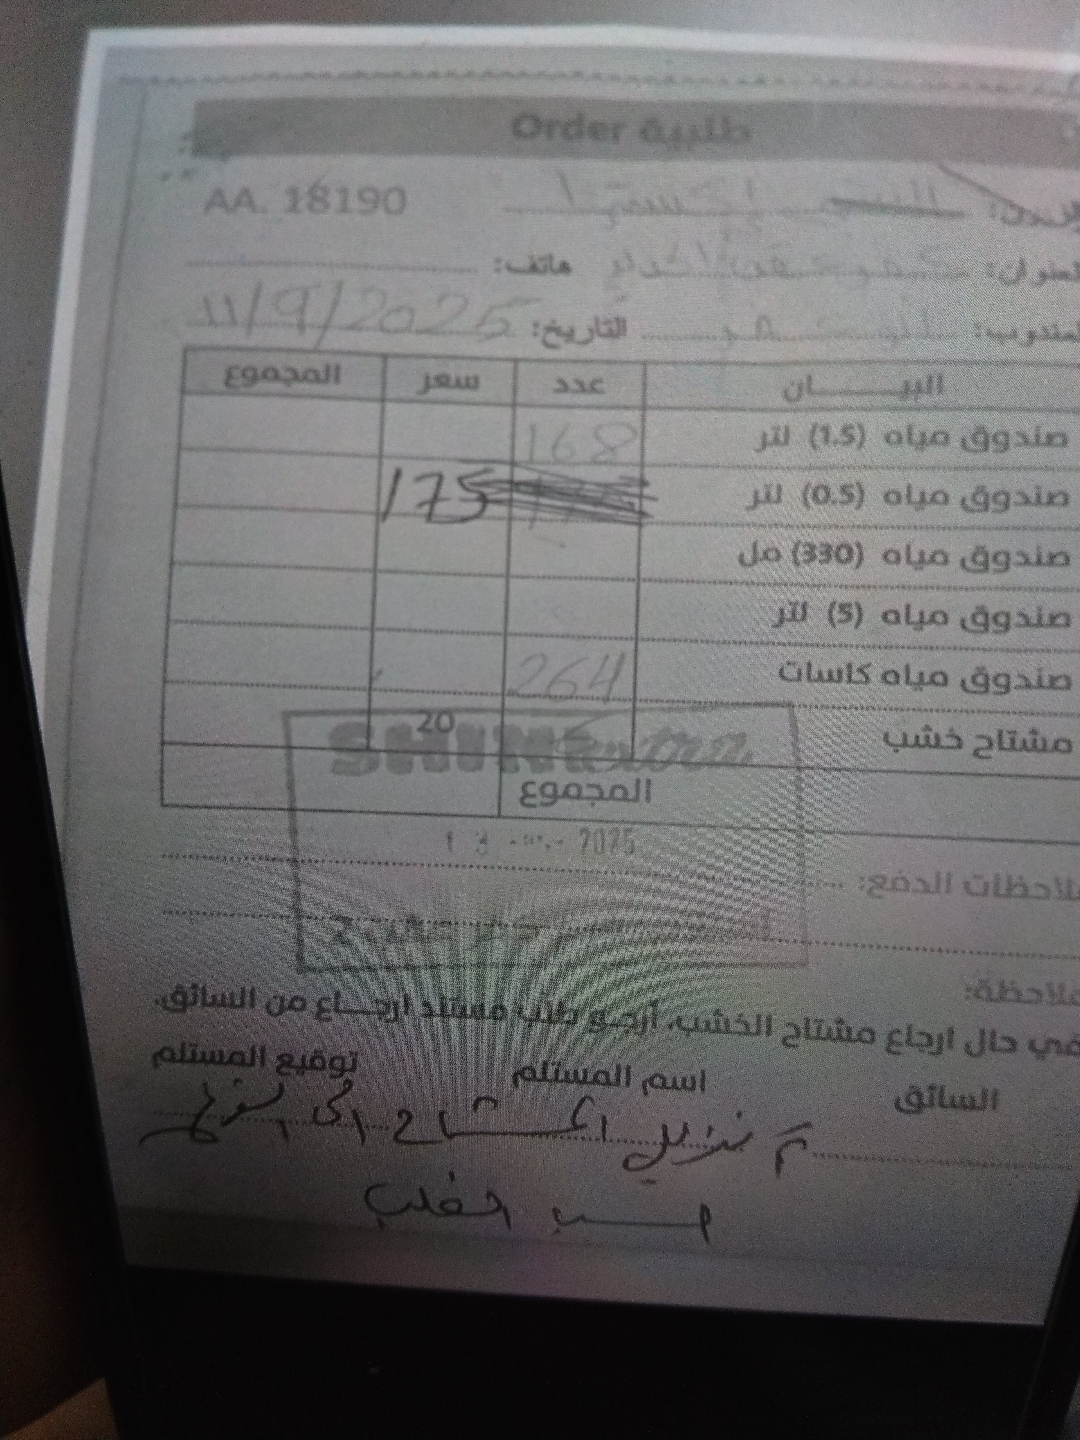 طلبية Order
AA. 18190
العنوان: هاتف:
المندوب: التاريخ: 11/9/2025
البيـــــان عدد سعر المجموع
صندوق مياه (1.5) لتر 168
صندوق مياه (0.5) لتر 175
صندوق مياه (330) مل
صندوق مياه (5) لتر
صندوق مياه كاسات 264
مشتاح خشب 20
SHINE extra
المجموع
13 2025
ملاحظات الدفع:
ملاحظة:
في حال ارجاع مشتاح الخشب، أرجو طلب مستند ارجاع من السائق.
السائق اسم المستلم توقيع المستلم
تم تنزيل المشتاح